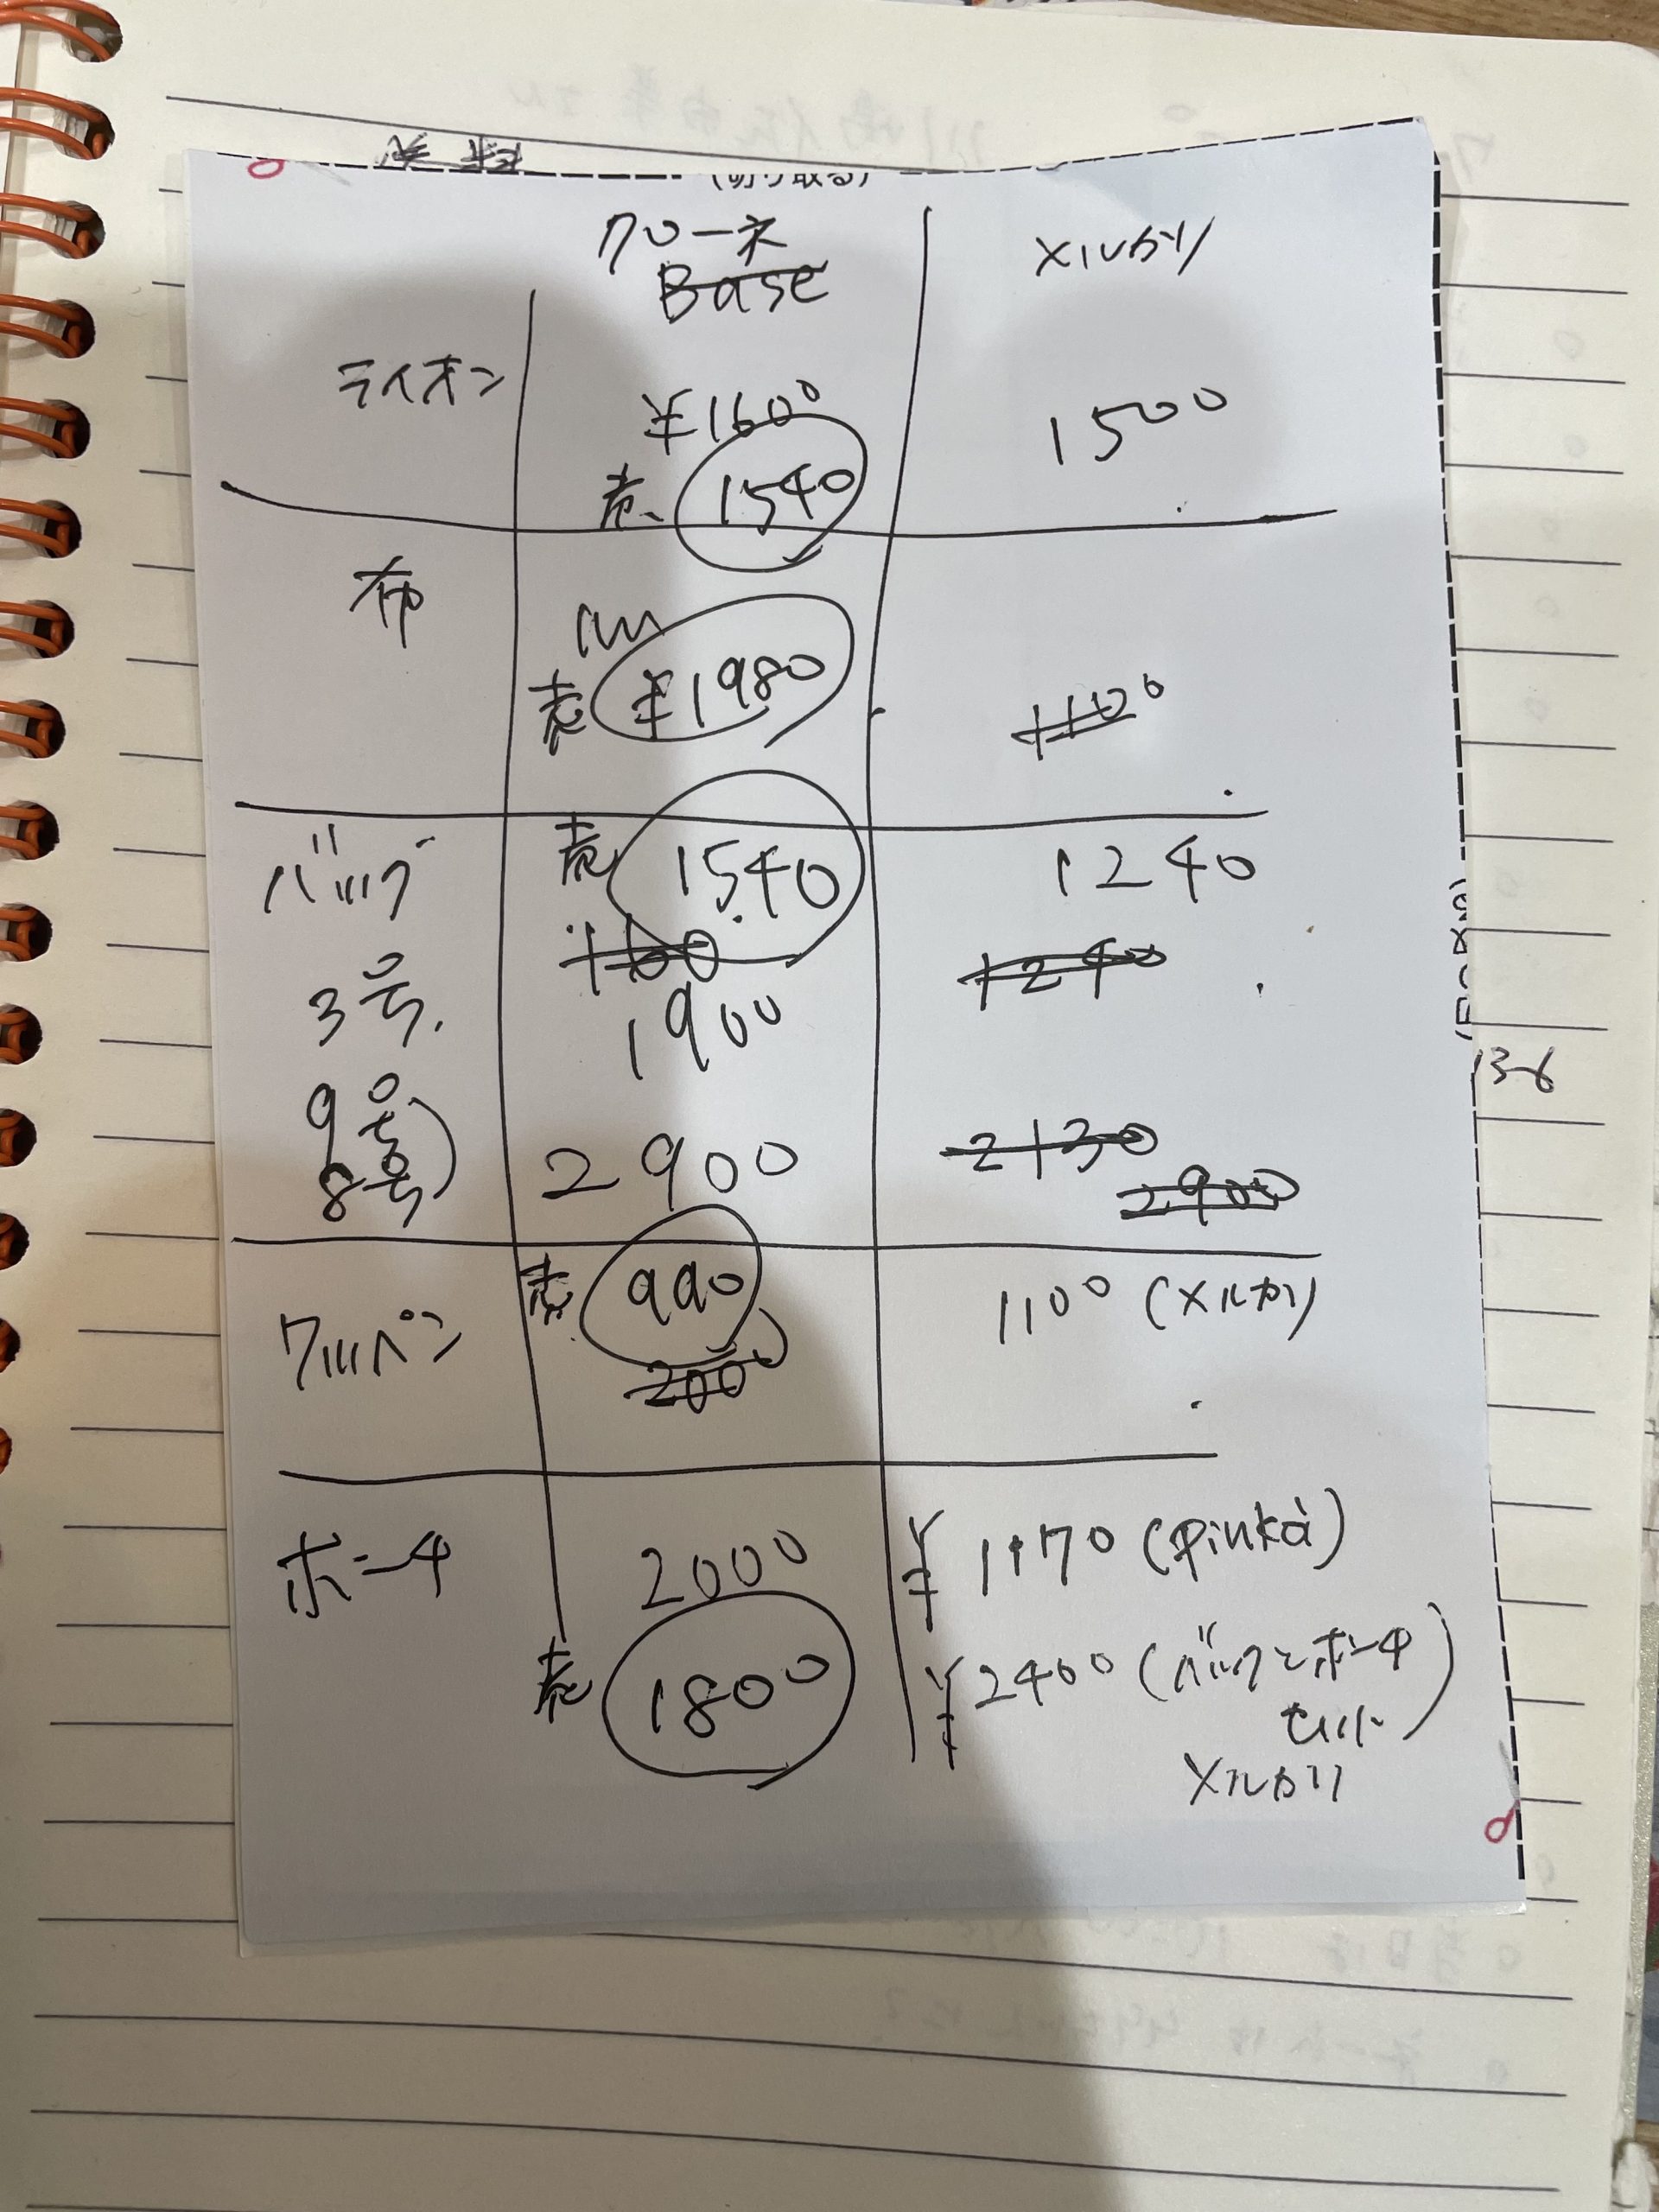 (切り取る)
クローネ
Base
メルカリ
ライオン
¥1600
売 1540
1500
布
1m
売 ¥1980
1100
バッグ
売 1540
1240
1240
3号.
1900
9号
8号
2900
2130
2900
売 990
ワッペン
1100 (メルカリ)
2000
ポーチ
2000
¥1170 (Pinkà)
売 1800
¥2400 (バックとポーチ
セット)
メルカリ